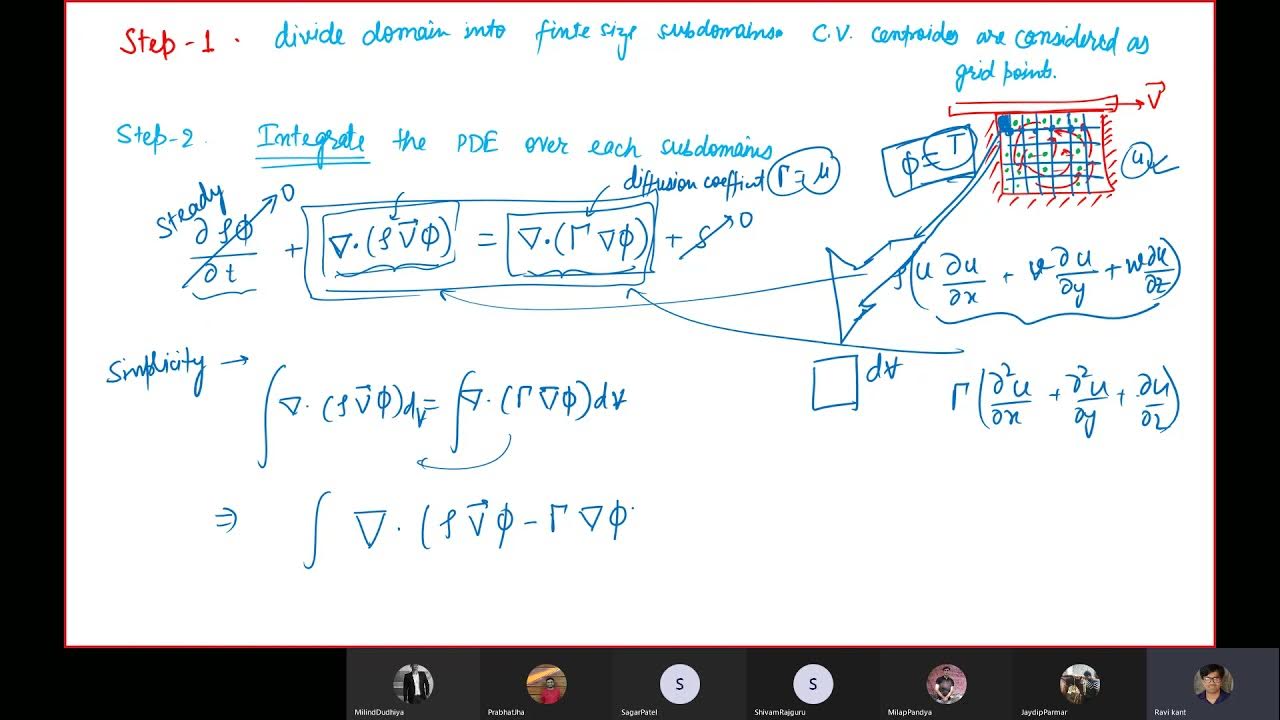 Step-1. divide domain into finte size subdomains. C.V. centroides are considered as
grid points.
V⃗
Step-2. Integrate the PDE over each subdomains
ϕ = T
u
diffusion coeffint Γ = μ
steady
∂ρϕ/∂t → 0 + ∇·(ρV⃗ϕ) = ∇·(Γ∇ϕ) + S → 0
ρ(u ∂u/∂x + v ∂u/∂y + w ∂u/∂z)
Simplicity →
∫∇·(ρV⃗ϕ)dV = ∫∇·(Γ∇ϕ)dV
dV
Γ(∂²u/∂x + ∂²u/∂y + ∂u/∂z)
⇒ ∫ ∇·(ρV⃗ϕ - Γ∇ϕ
S
S
MilindDudhiya
PrabhatJha
SagarPatel
ShivamRajguru
MilapPandya
JaydipParmar
Ravi kant